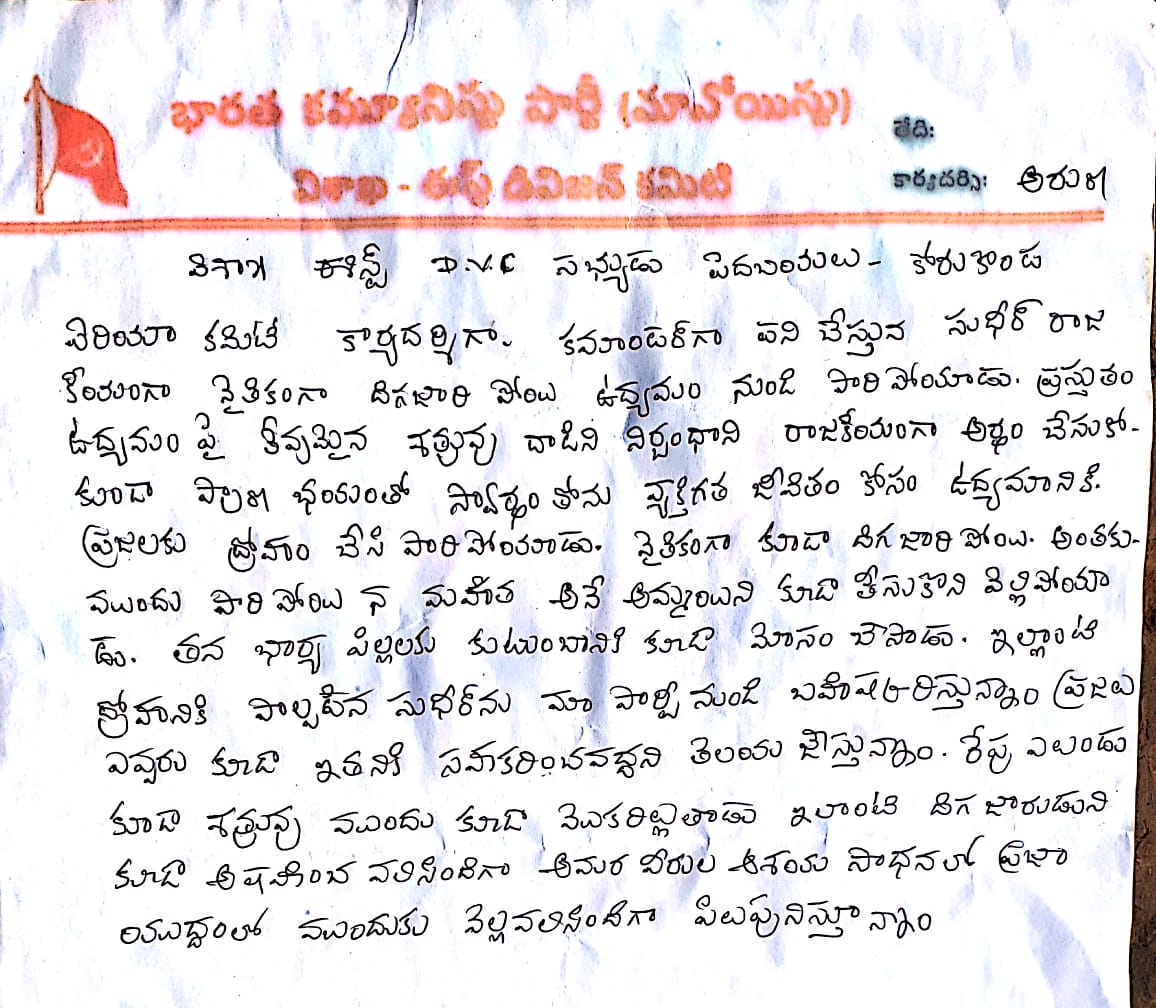 భారత కమ్యూనిస్టు పార్టీ (మావోయిస్టు)
విశాఖ - ఈస్ట్ డివిజన్ కమిటి
తేది:
కార్యదర్శి: అరుణ
విశాఖ ఈస్ట్ D.V.C సభ్యుడు పెదబయలు - కోరుకొండ
ఏరియా కమిటీ కార్యదర్శిగా. కమాండర్‌గా పని చేస్తున సుధీర్ రాజ
కీయంగా నైతికంగా దిగజారి పోయి ఉద్యమం నుండి పారి పోయాడు. ప్రస్తుతం
ఉద్యమం పై తీవ్రమైన శత్రువు దాడిని నిర్బంధాని రాజకీయంగా అర్థం చేసుకో-
కుండా ప్రాణ భయంతో స్వార్థం తోను వ్యక్తిగత జీవితం కోసం ఉద్యమానికి.
ప్రజలకు ద్రోహం చేసి పారి పోయాడు. నైతికంగా కూడా దిగ జారి పోయి. అంతకు-
ముందు పారి పోయి న మహిత అనే అమ్మాయిని కూడా తీసుకొని వెల్లిపోయా
డు. తన భార్య పిల్లలకు కుటుంబానికి కూడా మోసం చేసాడు. ఇల్లాంటి
ద్రోహానికి పాల్పడిన సుధీర్‌ను మా పార్టీ నుండి బహిష్కరిస్తున్నాం ప్రజలు
ఎవ్వరు కూడా ఇతనికి సహకరించవద్దని తెలియ జేస్తున్నాం. రేపు ఎల్లుండు
కూడా శత్రువు ముందు కూడా మొకరిల్లుతాడు ఇలాంటి దిగ జారుడుని
కూడా అసహించ వలిసిందిగా అమర వీరుల ఆశయ సాధనలో ప్రజా
యుద్ధంలో ముందుకు వెల్లవలిసిందిగా పిలుపునిస్తూన్నాం